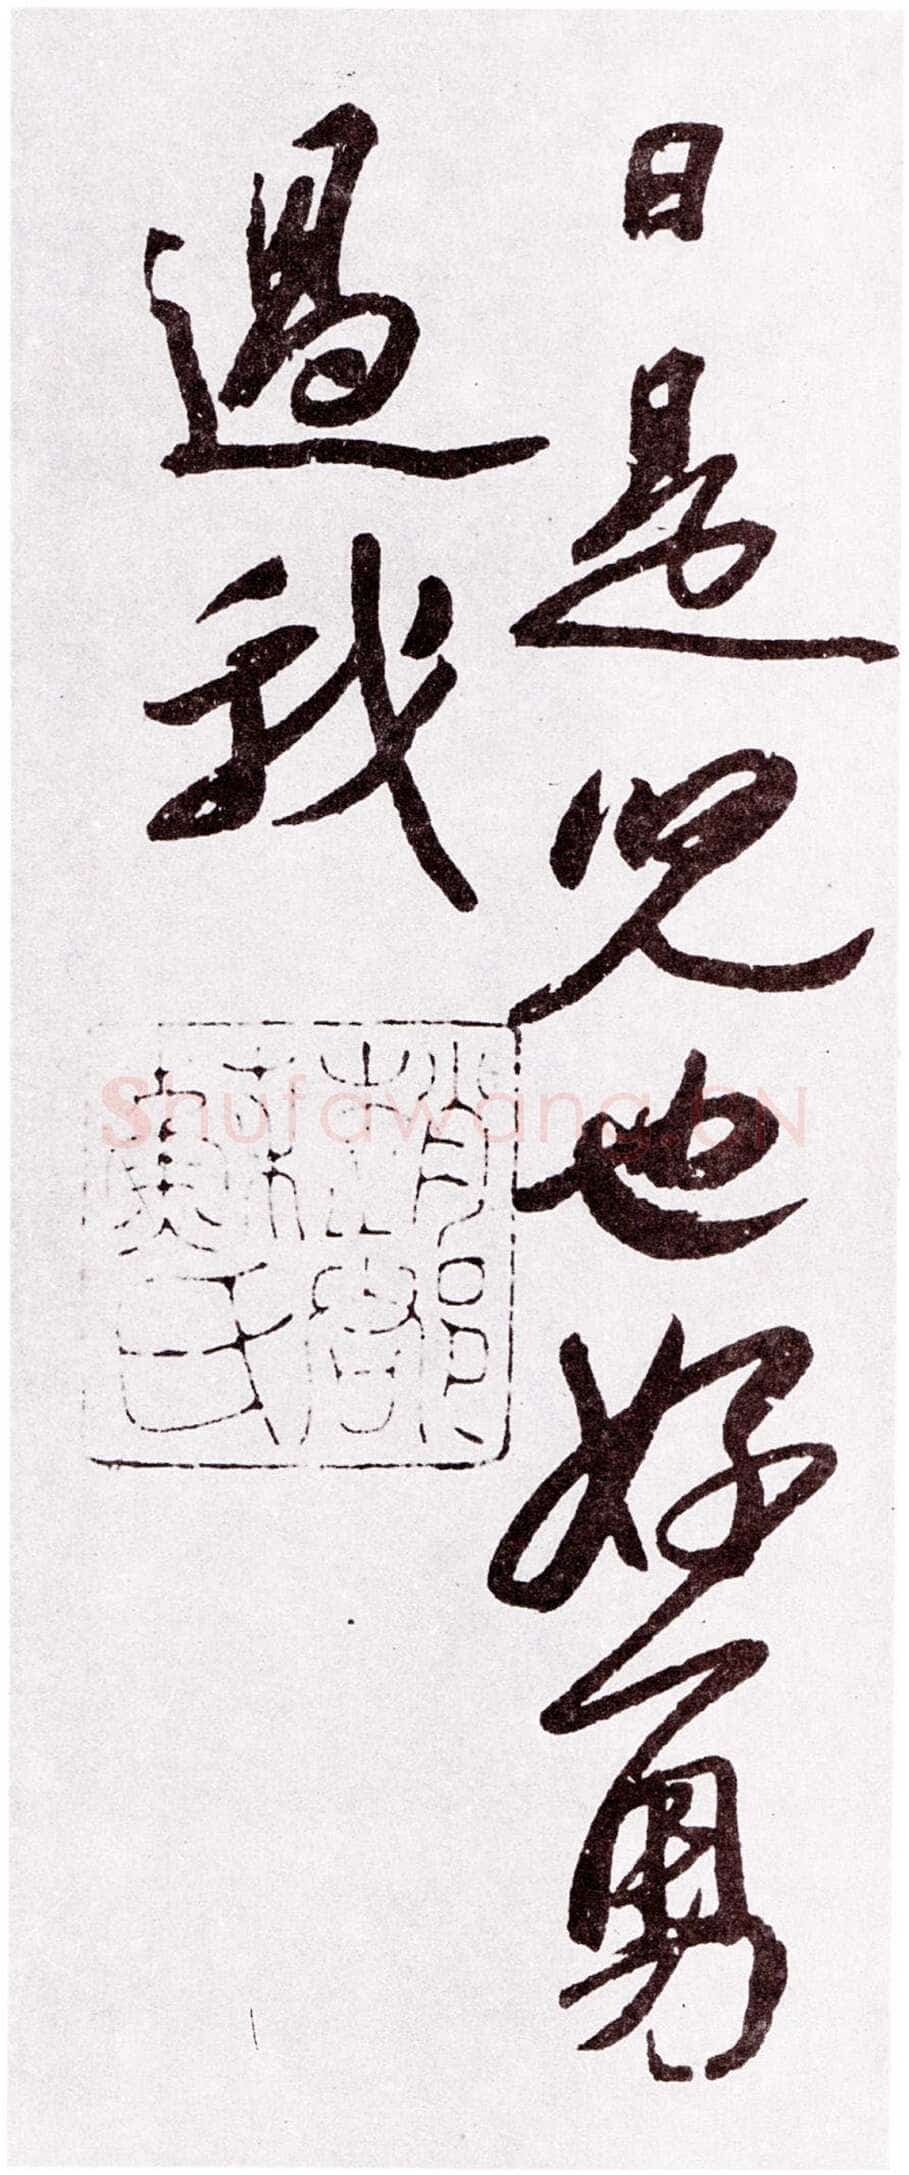 日是兒也好勇
過我
Shufawang.CN